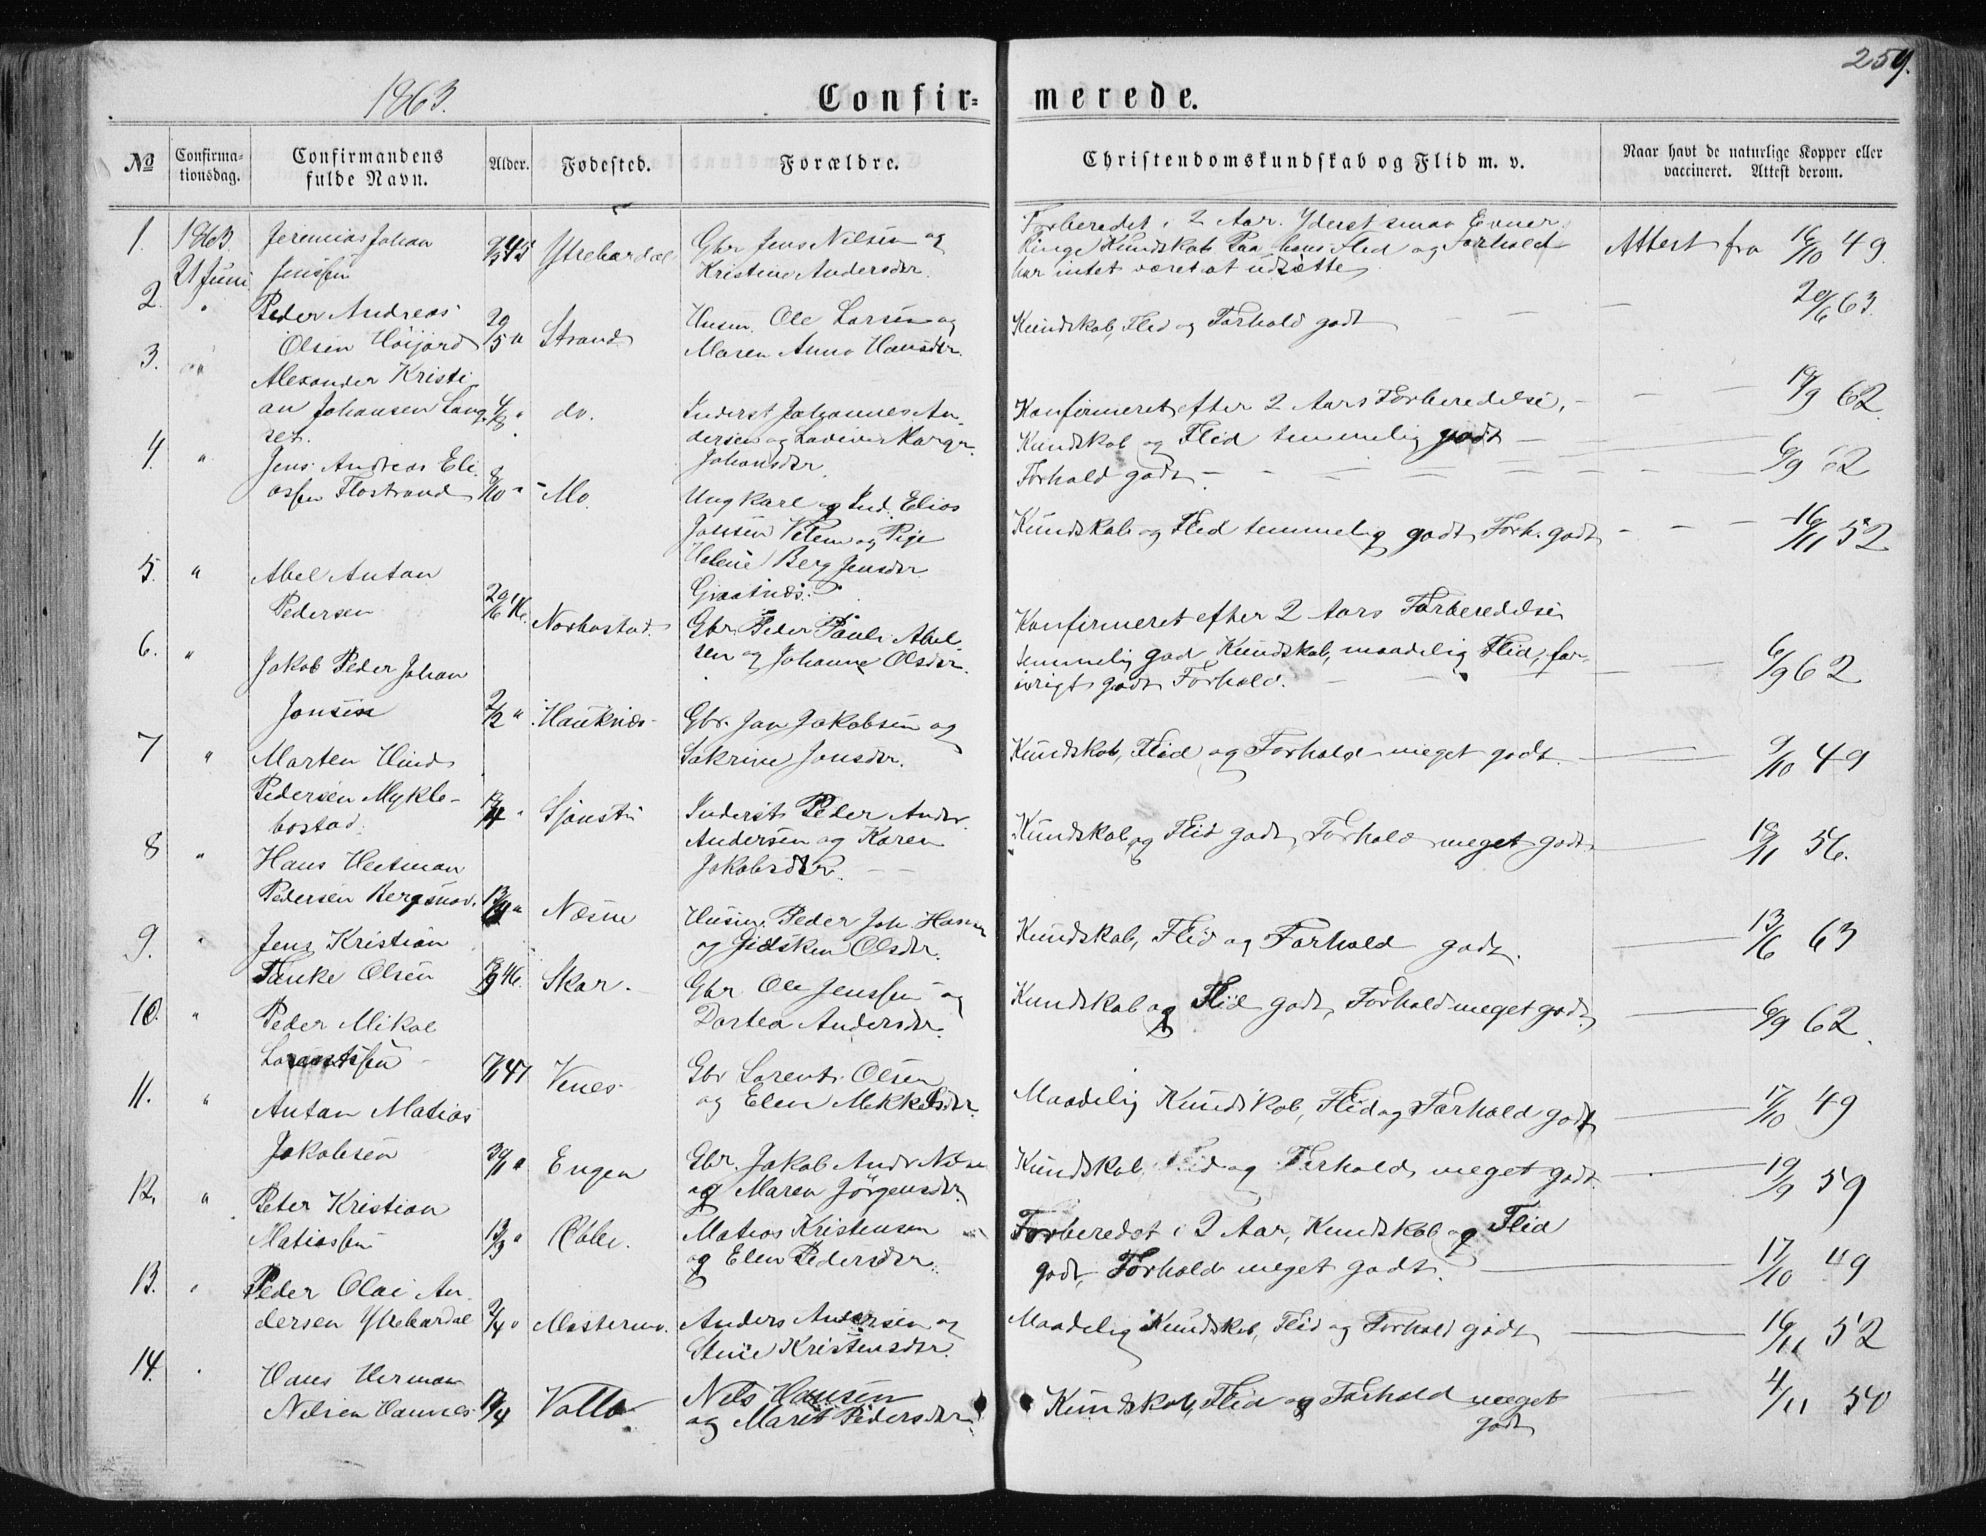 259.
1863.
Confir=
merede.
No
Confirma-
tionsdag.
Confirmandens
fulde Navn.
Alder.
Fødested.
Forældre.
Christendomskundskab og Flid m. v.
Naar havt de naturlige Kopper eller
vaccineret. Attest derom.
1. 1863 Jeremias Johan 45 Ytrebardal Gbr Jens Nilsen og
21 Juni Jenssen Kristine Andersdtr.
Forberedet i 2 Aar. Yderst smaa Evner.
Ringe Kundskab. Paa hans Flid og Forhold
har intet været at udsætte
Attest fra 16/10 49.
2. " Peder Andreas 20/5 " Strand Husm. Ole Larsen og
Olsen Høijord Maren Anna Hansdtr.
Kundskab, Flid og Forhold godt — — 20/6 63.
3. " Alexander Kristi
an Johansen Lang do. Inderst Johannes An-
set. dersen og Margr.
Johansdtr
Konfirmeret efter 2 Aars Forberedelse, - - - 19/9 62
Kundskab og Flid temmelig godt
Forhold godt. 6/9 62
4. " Jens Andreas Eli
assen Flostrand 8/10 " Mo. Ungkarl og Ind. Elias
og Pige
Helene Berg Jensdtr
Kundskab og Flid temmelig godt, Forh. godt - - - 16/11 52
5. " Abel Antan
Pedersen 46. Gbr. Peder Pauli Abel
sen og Johanne Olsdtr.
Konfirmeret efter 2 Aars Forberedelse
temmelig god Kundskab, maadelig Flid, for-
øvrigt godt Forhold. 6/9 62
6. " Jakob Peder Johan
Jonsen 2/2 " Hauknæs Gbr. Jon Jakobsen og
Jonsdtr.
Kundskab, Flid og Forhold meget godt. 9/10 49
7 " Marten Hind
Pedersen Mykle-
bostad. Inderst Peder Andr.
Andersen og Karen
Jakobsdtr.
Kundskab og Flid godt, Forhold meget godt. 56.
8 " Hans Heitman
Pedersen Næsne Husm. Peder Joh. Hans
og Gidsken Olsdtr.
Kundskab, Flid og Forhold godt. 13/6 63
9. " Jens Kristian
Tanke Olsen 46. Skar. Gbr Ole Jenssen og
Dortea Andersdtr.
Kundskab og Flid godt, Forhold meget godt. 6/9 62.
10. " Peder Mikal
Lorentssen 47 Venes Gbr Lorents Olsen
og Elen Mikkelsdtr.
Maadelig Kundskab, Flid og Forhold godt 17/10 49
11. " Antan Matias
Jakobsen Engen Gbr. Jakob Andr Nilsen
og Maren Jørgensdtr
Kundskab, Flid og Forhold meget godt. 19/9 59
12. " Peter Kristian
Matiassen 13/9 " Matias Kristensen
og Elen Pedersdtr.
Forberedet i 2 Aar, Kundskab og Flid
godt, Forhold meget godt. 17/10 49
13. " Peder Olai An-
dersen Ytrebardal 2/4 " Anders Andersen og
Stine Kristensdtr.
Maadelig Kundskab, Flid og Forhold godt 16/11 52
14. " Hans Herman
Nilsen Nils Hansen
og Maret Pedersdtr
Kundskab, Flid og Forhold meget
godt 4/11 50